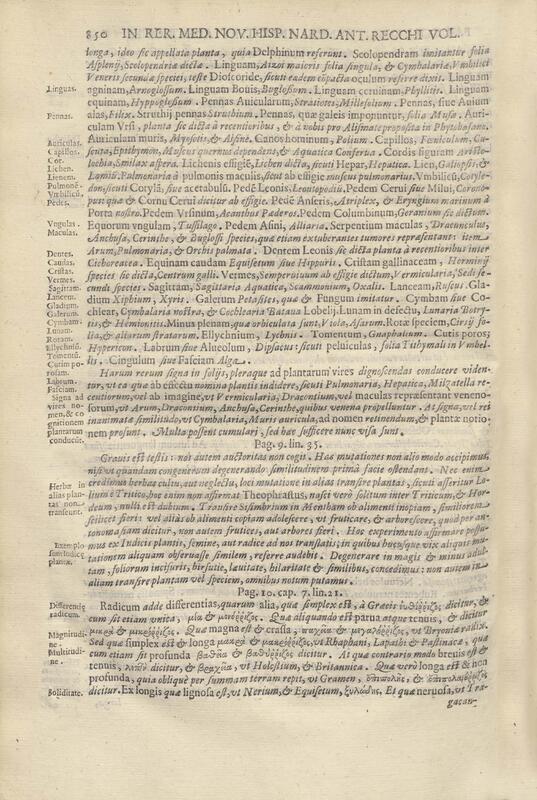 850 IN RER. MED. NOV. HISP. NARD. ANT. RECCHI VOL.
longa, ideo sic appellata planta, quia Delphinum referunt. Scolopendram imitantur folia
Asplenij, Scolopendriæ dicta. Linguam, Aizoi maioris folia singula, & Cymbalaria, Vmbilici
Veneris secunda species, teste Dioscoride, sicuti eadem cōpacta oculum referre dixit. Linguam
Linguas.
agninam, Arnoglossum. Linguam Bouis, Buglossum. Linguam ceruinam, Phyllitis. Linguam
equinam, Hyppoglossum. Pennas Auicularum, Stratiotes, Millefolium. Pennas, siue Auium
Pennas.
alas, Filex. Struthij pennas Struthium. Pennas, quæ galeis imponuntur, folia Musæ. Auricu-
lam Vrsi, planta sic dicta à recentioribus, & à vobis pro Alismate proposita in Phytobasano.
Auriculas.
Auriculam muris, Myosotis, & Alsine. Canos hominum, Polium. Capillos, Fœniculum, Cu-
Capillos.
scuta, Epithymon, Muscus quernus dependens, & Aquatica Conferua. Cordis figuram Aristo-
Cor.
lochia, Smilax aspera. Lichenis effigiē, Lichen dicta, sicuti Hepar, Hepatica. Lien, Galiopsis, &
Lichen.
Lienem.
Lamiū. Pulmonaria à pulmonis maculis, sicut ab effigie muscus pulmonarius. Vmbilicū, Cotyle-
Pulmonē.
don, sicuti Corylā, siue acetabulū. Pedē Leonis, Leontopodiū. Pedem Cerui siue Milui, Corono-
Vmbilicū.
Pedes.
pus: quæ & Cornu Cerui dicitur ab effigie. Pedē Anseris, Atriplex, & Eryngium marinum à
Porta nostro. Pedem Vrsinum, Acanthus Paderos. Pedem Columbinum, Geranium sic dictum.
Vngulas.
Equorum vngulam, Tussilago. Pedem Asini, Alliaria. Serpentium maculas, Dracunculus,
Maculas.
Anchusa, Cerinthe, & Buglossi species, quæ etiam exuberantes tumores repræsentant: item
Arum, Pulmonaria, & Orchis palmata. Dentem Leonis sic dicta planta à recentioribus inter
Dentes.
Caudas.
Cichoreacea. Equinam caudam Equisetum siue Hipporis. Cristam gallinaceam, Horminij
Cristas.
species sic dicta, Centrum galli. Vermes, Semperuiuum ab effigie dictum, Vermicularia, Sedi se-
Vermes.
Sagittam.
cundi species. Sagittam, Sagittaria Aquatica, Scammonium, Oxalis. Lanceam, Ruscus. Gla-
Lanceam.
Gladium.
dium Xiphium, Xyris. Galerum Petasites, quæ & Fungum imitatur. Cymbam siue Co-
Galerum.
chlear, Cymbalaria nostra, & Cochlearia Bataua Lobelij. Lunam in defectu, Lunaria Botry-
Cymbam.
tis, & Hemionitis. Minus plenam, quæ orbiculata sunt, Viola, Asarum. Rotæ speciem, Cirsij fo-
Lunam.
Rotam.
lia, & aliorum stratorum. Ellychnium, Lychnis. Tomentum, Gnaphalium. Cutis poros;
Ellychniū.
Hypericon. Labrum siue Alueolum, Dipsacus: sicuti peluiculas, folia Tithymali in Vmbel-
Tomentū.
Cutim po-
rosam.
lis. Cingulum siue Fasciam Alga.
Labrum.
Harum rerum signa in folijs, pleraque ad plantarum vires dignoscendas conducere viden-
Fasciam.
tur, vt ea quæ ab effectu nomina plantis indidere, sicuti Pulmonaria, Hepatica, Milzatella re-
Signa ad
centiorum, vel ab imagine, vt Vermicularia, Dracontium, vel maculas repræsentant veneno-
vires no-
men, & co
sorum, vt Arum, Dracontium, Anchusa, Cerinthe, quibus venena propelluntur. At signa, vel rei
gnitionem
inanimatæ similitudo, vt Cymbalaria, Muris auricula, ad nomen retinendum, & plantæ notio-
plantarum
conducūt.
nem prosunt. Multa possent cumulari, sed hæc sufficere nunc visa sunt.
Pag. 9. lin. 35.
Grauis est testis: nos autem auctoritas non cogit. Has mutationes non alio modo accipimus,
nisi vt quandam congenerum degenerando similitudinem prima facie ostendant. Nec enim
Herbæ in
credimus herbas cultu, aut neglectu, loci mutatione in alias transire plantas, sicuti asseritur Lo-
alias plan-
lium è Tritico, hoc enim non affirmat Theophrastus, nasci verò solitum inter Triticum, & Hor-
tas non
transeunt.
deum, multi est dubium. Transire Sisimbrium in Mentham ob alimenti inopiam, similiorem
scilicet fieri: vel aliàs ob alimenti copiam adolescere, vt fruticare, & arborescere, quod per an-
tonomasiam dicitur, non autem frutices, aut arbores fieri. Hoc experimento affirmare possu-
Exemplo
mus ex Indicis plantis, semine, aut radice ad nos translatis; in quibus hucusque vix aliquis mu-
sunt Indicæ
plantæ.
tationem aliquam obseruasse similem, referre audebit. Degenerare in magis & minus adul-
tam, foliorum incisuris, hirsutie, læuitate, hilaritate & similibus, concedimus: non autem in
aliam transire plantam vel speciem, omnibus notum putamus.
Pag. 10. cap. 7. lin. 21.
Differentiæ
Radicum adde differentias, quarum alia, quæ simplex est, à Græcis dicitur, &
radicum.
cum sit etiam vnica, μία & μονόρριζος. Quæ aliquando est parua atque tenuis, & dicitur
Magnitudi-
μικρὰ & μικρόρριζος. Quæ magna est & crassa, παχεῖα & μεγαλόρριζος, vt Bryoniæ radix.
ne.
Multitudi-
Sed quæ simplex est & longa μακρὰ & μακρόρριζος, vt Rhaphani, Lapathi & Pastinacæ, quæ
ne.
cum etiam sit profunda βαθεῖα & βαθύρριζος dicitur. At quæ contrario modo breuis est &
tenuis, λεπτὴ dicitur, & βραχεῖα, vt Holostium, & Britannica. Quæ verò longa est & non
profunda, quia obliquè per summam terram repit, vt Gramen, ἐπιπολῆς, & ἐπιπολαιόρριζος
Soliditate.
dicitur. Ex longis quæ lignosa est, vt Nerium, & Equisetum, ξυλώδης. Et quæ neruosa, vt Tra-
gacan-